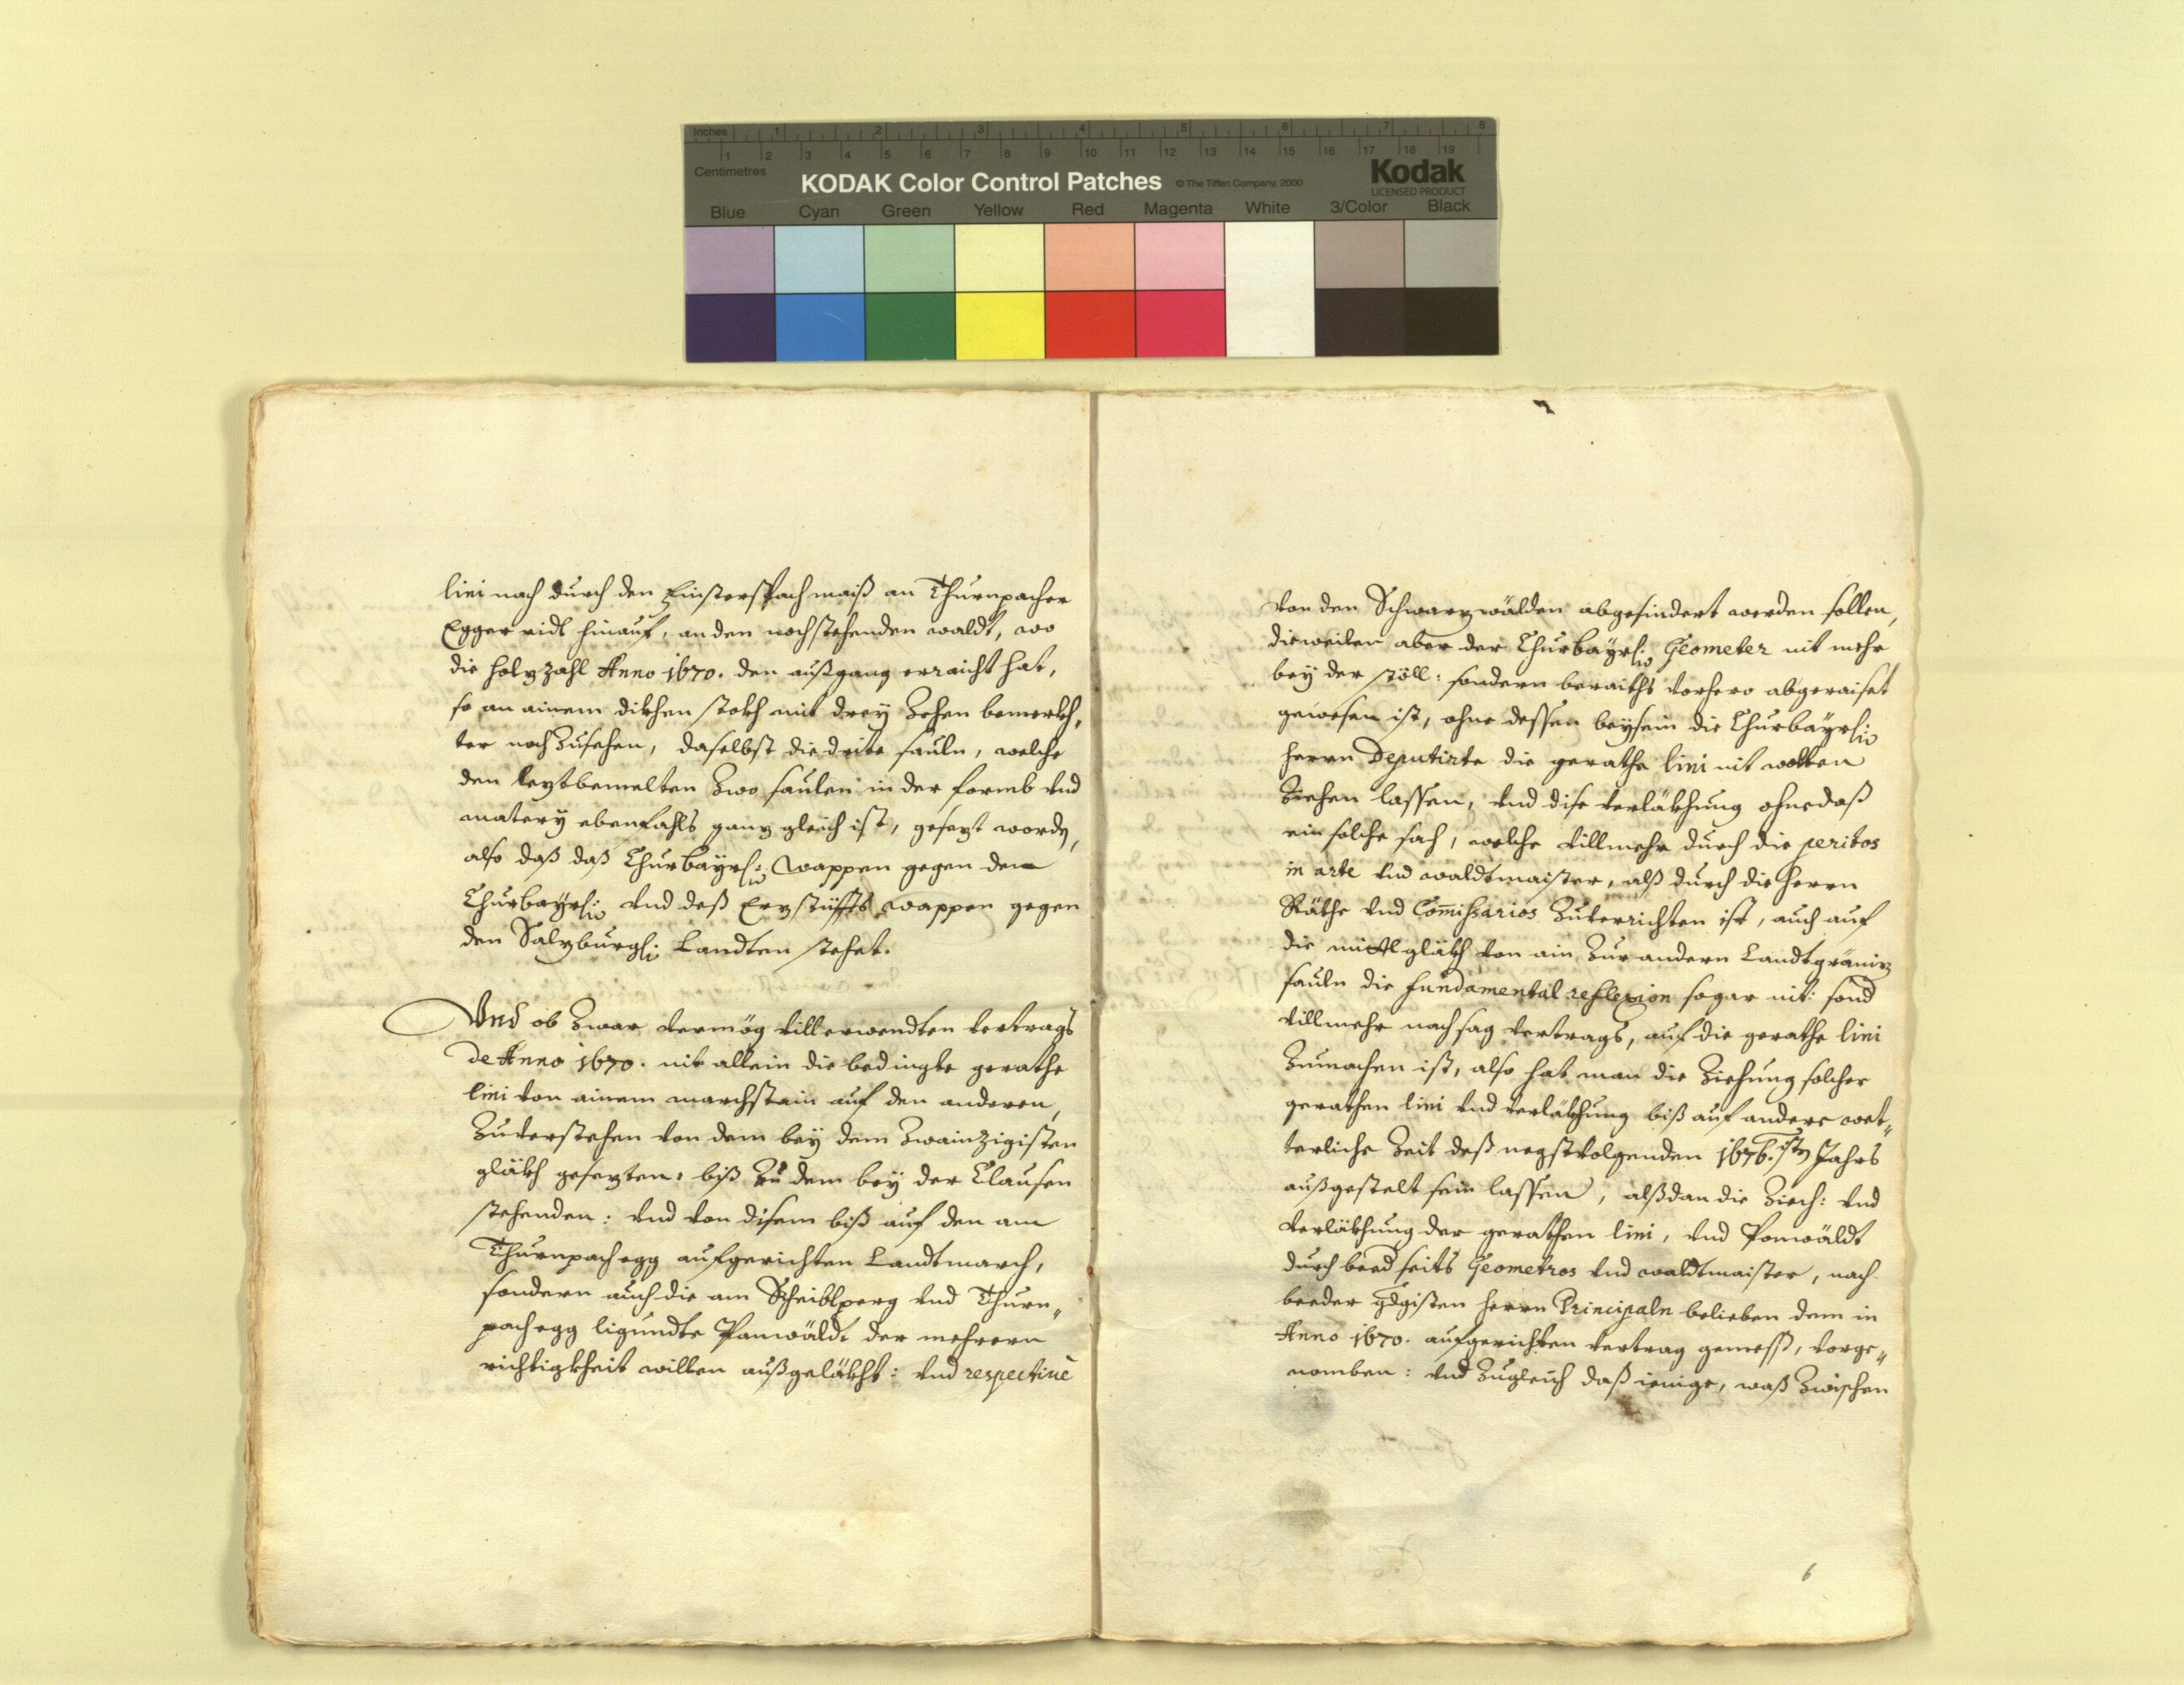 Inches 1 2 3 4 5 6 7 8
1 2 3 4 5 6 7 8 9 10 11 12 13 14 15 16 17 18 19
Centimetres
KODAK Color Control Patches © The Tiffen Company, 2000 Kodak
LICENSED PRODUCT
Blue Cyan Green Yellow Red Magenta White 3/Color Black
lini nach durch den Finsterspachmaiß an Thurnpacher
Egger ridl hinauf, an den noch stehenden waldt, wo
die holzzahl Anno 1670. den außgang erraicht hat,
so an ainem dikhen stokh mit drey Zehen bemerkh„
ter noch Zusehen, daselbst die drite sauln, welche
den leztbemelten Zwo saulen in der formb vnd
matery ebenfahls ganz gleich ist, gesezt wordn,
also daß daß Churbayrl: wappen gegen dem
Churbayrl: vnd deß Erzstüffts wappen gegen
den Salzburgl: Landten stehet.
Vnd ob Zwar vermög villerwendten vertrags
de Anno 1670. nit allein die bedingte gerathe
lini von ainem marchstain auf den anderen,
Zuverstehen von dem bey dem Zwainzigisten
gläkh gesezten: biß Zu dem bey der Clausen
stehenden: vnd von disem biß auf den am
Thurnpachegg aufgerichten Landtmarch,
sondern auch die am Scheiblperg vnd Thurn„
pachegg ligundte Panwäldt der mehrern
richtigkheit willen außgeläkht: vnd respectiuè
von den Schwarzwälden abgesindert werden sollen,
dieweilen aber der Churbayrl: Geometer nit mehr
bey der stöll: sondern beraiths vorhero abgeraiset
gewesen ist, ohne dessen beysein die Churbayrl:
herrn Deputirte die gerathe lini nit wollen
Ziehen lassen, vnd dise verläkhung ohnedaß
ein solche sach, welche villmehr durch die peritos
in arte vnd waldtmaister, alß durch die herrn
Räthe vnd Com̅ißarios Zuverrichten ist, auch auf
die mittlgläkh von ain Zur andern Landtgräniz
sauln die fundamental reflexion sogar nit: sond
villmehr nach sag vertrags, auf die gerathe lini
Zumachen ist, also hat man die Ziehung solcher
gerathen lini vnd verläkhung biß auf andere wet„
terliche Zeit deß negstvolgenden 1676.istn Jahrs
außgestelt sein lassen, alßdan die Zieh: vnd
verläkhung der gerathen lini, vnd Panwäldt
durch beedseits Geometros vnd waldtmaister, nach
beeder gdgisten herrn Principaln belieben dem in
Anno 1670. aufgerichten vertrag gemeß, vorge„
nomben: vnd Zugleich daß ienige, waß Zwischen
6